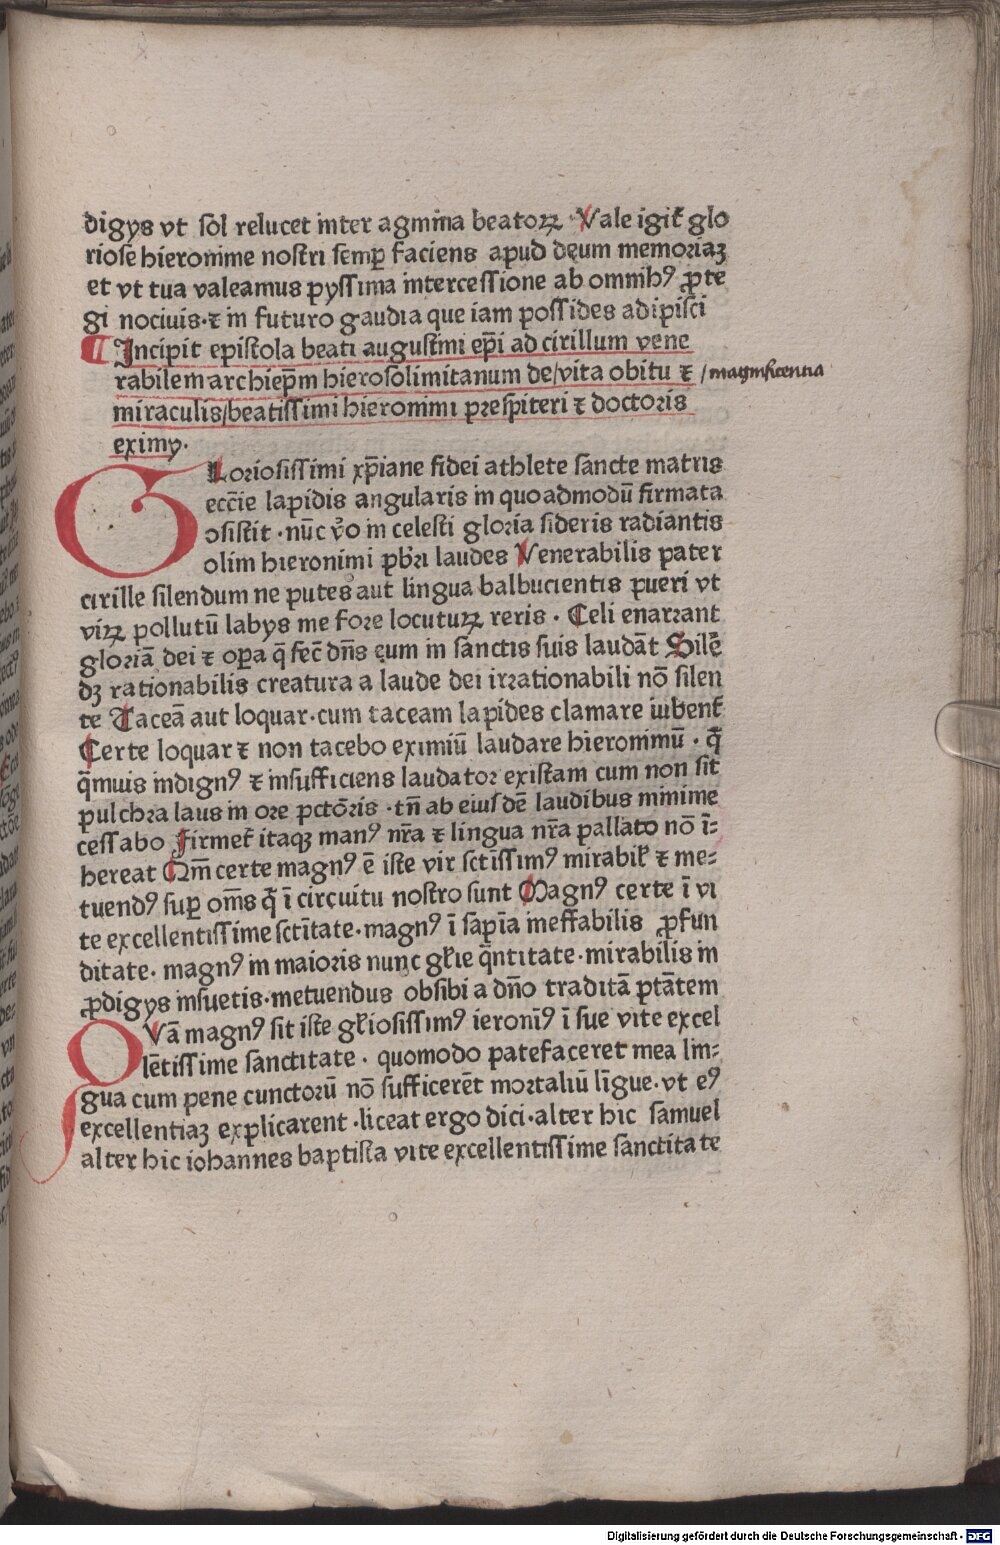 digys vt sol relucet inter agmina beatoꝝ Vale igit̄ glo
riose hieronime nostri semꝑ faciens apud deum memoriaꝫ
et vt tua valeamus pyssima intercessione ab omnibꝰ ꝓte
gi nociuis·⁊ in futuro gaudia que iam possides adipisci
¶ Incipit epistola beati augustini ep̄i ad cirillum vene
rabilem archiep̄m hierosolimitanum de/vita obitu ⁊ /magnificentia
miraculis/beatissimi hieronimi prespiteri ⁊ doctoris
eximy.
GLoriosissimi xp̄iane fidei athlete sancte matris
ecc̄ie lapidis angularis in quo admodū firmata
ↄsistit ·nūc v̊o in celesti gloria sideris radiantis
olim hieronimi pb̄ri laudes Venerabilis pater
cirille silendum ne putes aut lingua balbucientis pueri vt
viꝝ pollutū labys me fore locutuꝝ reris · Celi enarrant
gloriā dei ⁊ oꝑa q̄ fec̄ dn̄s eum in sanctis suis laudāt Silē
dꝫ rationabilis creatura a laude dei irrationabili nō silen
te Taceā aut loquar·cum taceam lapides clamare iubent̄
Certe loquar ⁊ non tacebo eximiū laudare hieronimū · q̄
q̄muis indignꝰ ⁊ insufficiens laudator existam cum non sit
pulchra laus in ore pctōris ·tn̄ ab eiusdē laudibus minime
cessabo Firmet̄ itaqꝫ manꝰ nr̄a ⁊ lingua nr̄a pallato nō ī⸗
hereat Qm̄ certe magnꝰ ē iste vir sctīssimꝰ mirabil̄ ⁊ me⸗
tuendꝰ suꝑ om̄s q̄ ī circuitu nostro sunt Magnꝰ certe ī vi
te excellentissime sctītate·magnꝰ ī sap̄ia ineffabilis ꝓfun
ditate· magnꝰ in maioris nunc gl̄ie q̄ntitate·mirabilis in
ꝓdigys insuetis·metuendus ob sibi a dn̄o traditā ptātem
QVā magnꝰ sit iste gl̄iosissimꝰ ieronīꝰ ī sue vite excel
lētissime sanctitate · quomodo patefaceret mea lin⸗
gua cum pene cunctorū nō sufficerēt mortaliū līgue·vt eꝰ
excellentiaꝫ explicarent ·liceat ergo dici·alter hic samuel
alter hic iohannes baptista vite excellentissime sanctitate
Digitalisierung gefördert durch die Deutsche Forschungsgemeinschaft - DFG